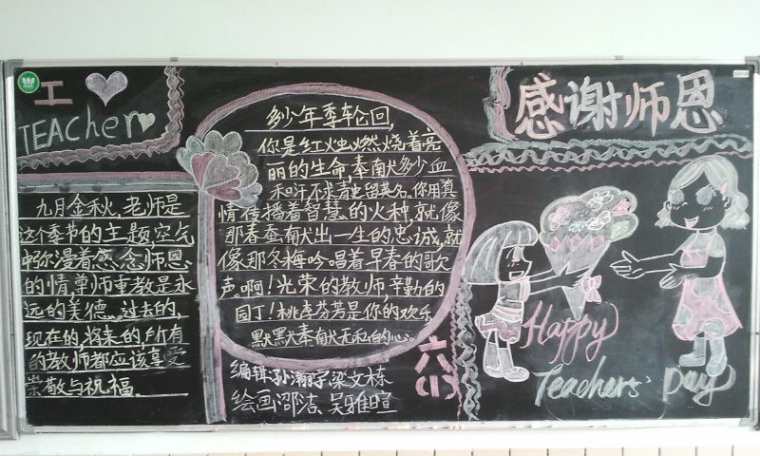 I
TEACher
九月金秋,老师是
这个季节的主题,空气
中弥漫着感念师恩
的情尊师重教是永
远的美德。过去的,
现在的,将来的,所有
的教师都应该享受
崇敬与祝福。
多少年季轮回,
你是红火虫燃烧着亮
丽的生命奉献多少血
和汗不求青史留英名。你用真
情传播着智慧的火种。就像
那春蚕献出一生的忠诚,就
像那冬梅吟唱着早春的歌
声。啊!光荣的教师,辛勤的
园丁!桃李芬芳是你的欢乐
默默奉献无私的心。
编辑:孙瀚宇 梁文栋
绘画:邵洁 吴雅暄
六(1)
感谢师恩
Happy
Teachers' Day